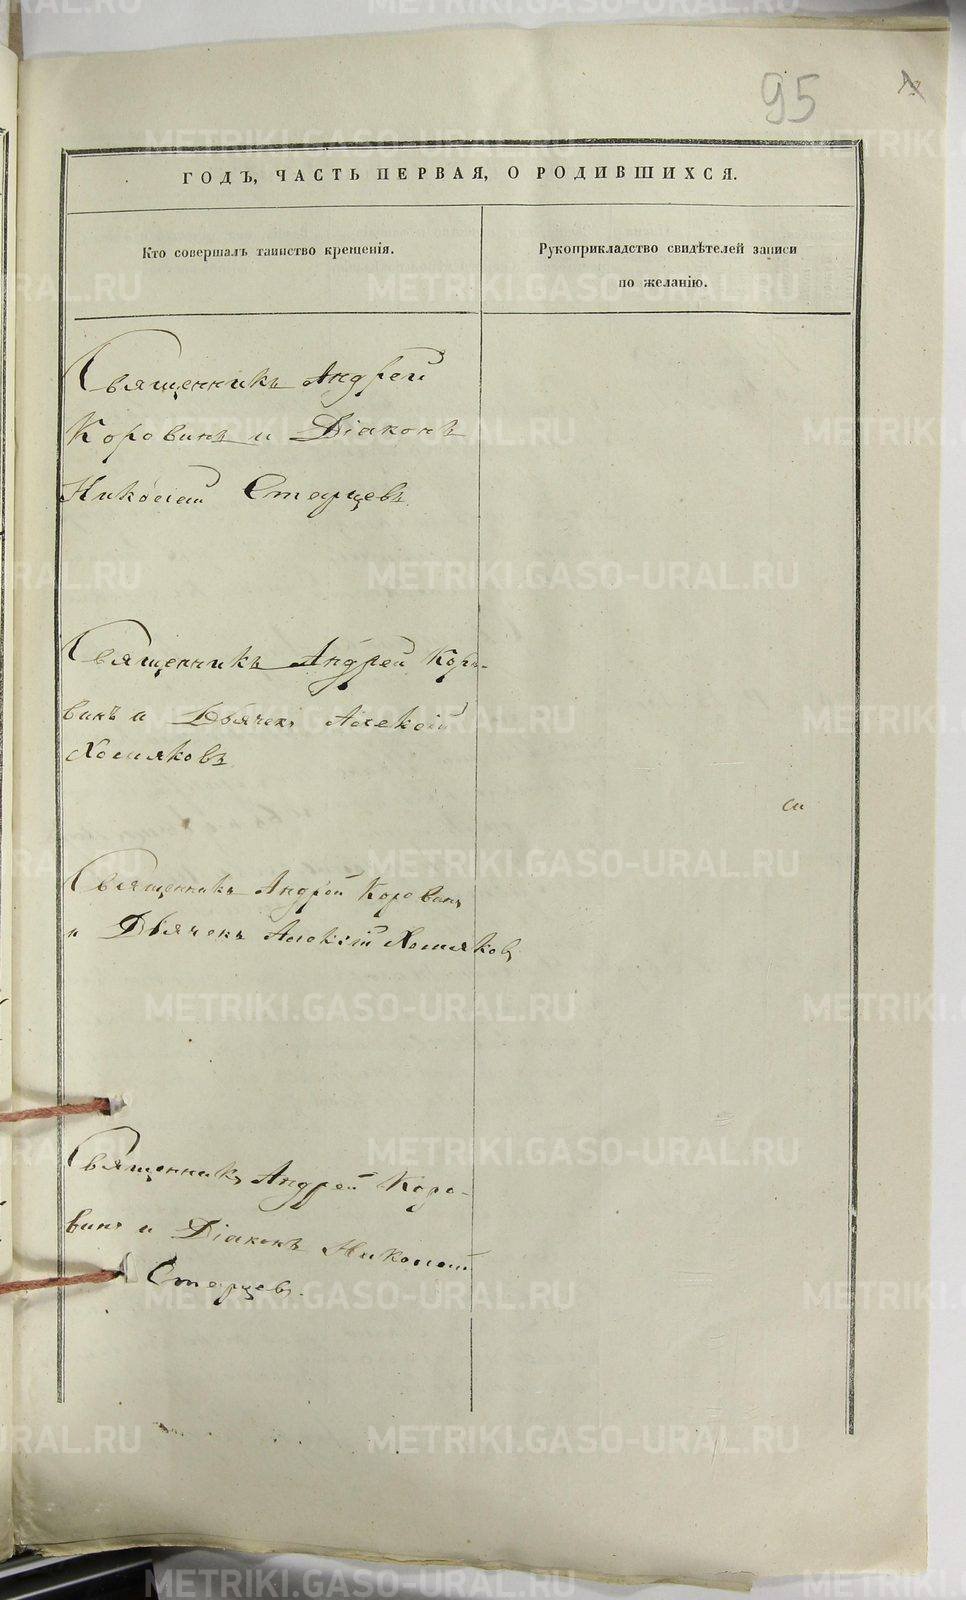 95
ГОДЪ, ЧАСТЬ ПЕРВАЯ, О РОДИВШИХСЯ.
Кто совершалъ таинство крещенія.
Рукоприкладство свидѣтелей записи
по желанію.
Священникъ Андрей
Коровинъ и Діаконъ
Николай Старцевъ
Священникъ Андрей Коро-
винъ и Дьячекъ Алексій
Хомяковъ
Священникъ Андрей Коровинъ
и Дьячекъ Алексій Хомяковъ
Священникъ Андрей Коро-
винъ и Діаконъ Николай
Старцевъ.
METRIKI.GASO-URAL.RU